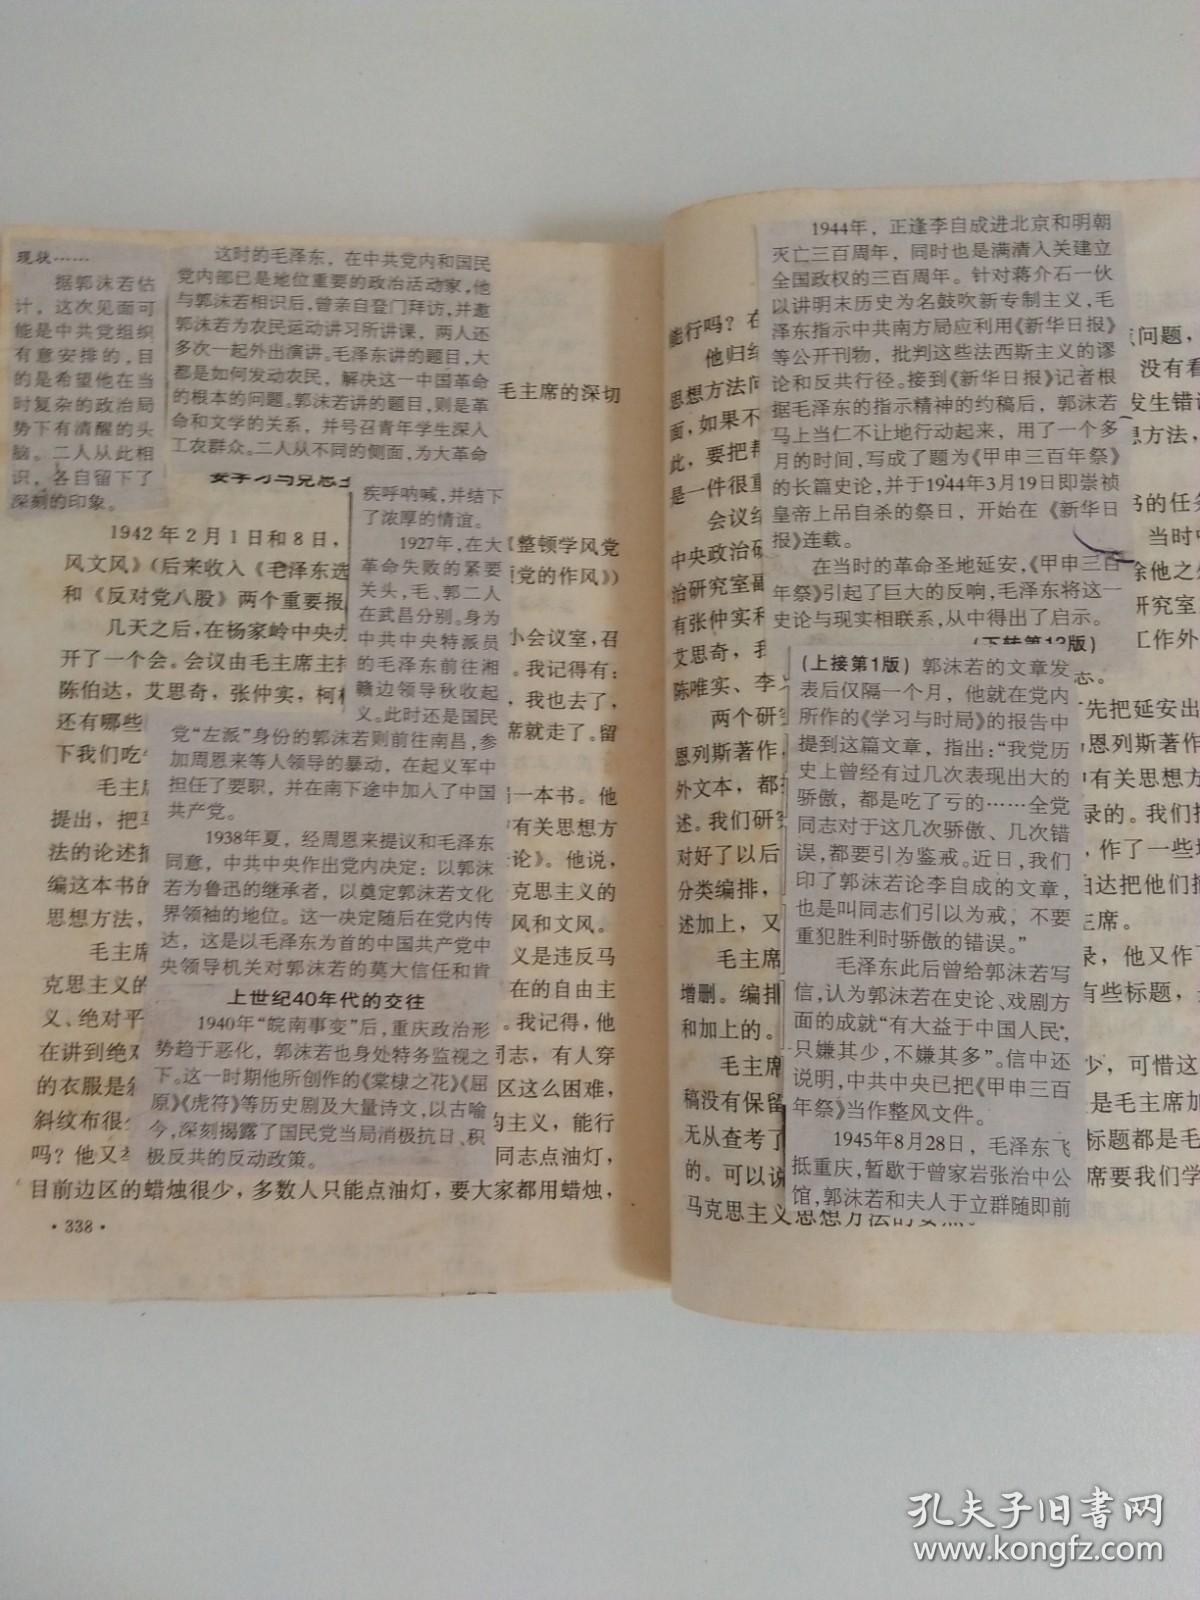 现状……
据郭沫若估
计，这次见面可
能是中共党组织
有意安排的，目
的是希望他在当
时复杂的政治局
势下有清醒的头
脑。二人从此相
识，各自留下了
深刻的印象。
这时的毛泽东，在中共党内和国民
党内部已是地位重要的政治活动家，他
与郭沫若相识后，曾亲自登门拜访，并邀
郭沫若为农民运动讲习所讲课，两人还
多次一起外出演讲。毛泽东讲的题目，大
都是如何发动农民，解决这一中国革命
的根本的问题。郭沫若讲的题目，则是革
命和文学的关系，并号召青年学生深入
工农群众。二人从不同的侧面，为大革命
疾呼呐喊，并结下
了浓厚的情谊。
1927年，在大
革命失败的紧要
关头，毛、郭二人
在武昌分别。身为
中共中央特派员
的毛泽东前往湘
赣边领导秋收起
义。此时还是国民
党“左派”身份的郭沫若则前往南昌，参
加周恩来等人领导的暴动，在起义军中
担任了要职，并在南下途中加入了中国
共产党。
1938年夏，经周恩来提议和毛泽东
同意，中共中央作出党内决定：以郭沫
若为鲁迅的继承者，以奠定郭沫若文化
界领袖的地位。这一决定随后在党内传
达，这是以毛泽东为首的中国共产党中
央领导机关对郭沫若的莫大信任和肯
上世纪40年代的交往
1940年“皖南事变”后，重庆政治形
势趋于恶化，郭沫若也身处特务监视之
下。这一时期他所创作的《棠棣之花》《屈
原》《虎符》等历史剧及大量诗文，以古喻
今，深刻揭露了国民党当局消极抗日、积
极反共的反动政策。
毛主席的深切
1942年2月1日和8日，《整顿学风党
风文风》（后来收入《毛泽东选 党的作风》）
和《反对党八股》两个重要报
几天之后，在杨家岭中央办 小会议室，召
开了一个会。会议由毛主席主持 。我记得有：
陈伯达，艾思奇，张仲实，柯柏 ，我也去了，
还有哪些 席就走了。留
下我们吃
毛主 一本书。他
提出，把马 有关思想方
法的论述 论》。他说，
编这本书的 克思主义的
思想方法， 风和文风。
毛主席 义是违反马
克思主义的 在的自由主
义、绝对平 。我记得，他
在讲到绝对 同志，有人穿
的衣服是 区这么困难，
斜纹布很少 主义，能行
吗？他又 同志点油灯，
目前边区的蜡烛很少，多数人只能点油灯，要大家都用蜡烛，
·338·
1944年，正逢李自成进北京和明朝
灭亡三百周年，同时也是满清入关建立
全国政权的三百周年。针对蒋介石一伙
以讲明末历史为名鼓吹新专制主义，毛
泽东指示中共南方局应利用《新华日报》
等公开刊物，批判这些法西斯主义的谬
论和反共行径。接到《新华日报》记者根
据毛泽东的指示精神的约稿后，郭沫若
马上当仁不让地行动起来，用了一个多
月的时间，写成了题为《甲申三百年祭》
的长篇史论，并于1944年3月19日即崇祯
皇帝上吊自杀的祭日，开始在《新华日
报》连载。
在当时的革命圣地延安，《甲申三百
年祭》引起了巨大的反响，毛泽东将这一
史论与现实相联系，从中得出了启示。
（下转第13版）
（上接第1版）郭沫若的文章发
表后仅隔一个月，他就在党内
所作的《学习与时局》的报告中
提到这篇文章，指出：“我党历
史上曾经有过几次表现出大的
骄傲，都是吃了亏的……全党
同志对于这几次骄傲、几次错
误，都要引为鉴戒。近日，我们
印了郭沫若论李自成的文章，
也是叫同志们引以为戒，不要
重犯胜利时骄傲的错误。”
毛泽东此后曾给郭沫若写
信，认为郭沫若在史论、戏剧方
面的成就“有大益于中国人民”，
只嫌其少，不嫌其多”。信中还
说明，中共中央已把《甲申三百
年祭》当作整风文件。
1945年8月28日，毛泽东飞
抵重庆，暂歇于曾家岩张治中公
馆，郭沫若和夫人于立群随即前
能行吗？在 问题，
他归结 没有看
思想方法问 发生错误
面，如果不 思想方法，
此，要把
是一件很重 书的任务
会议结 当时中
中央政治研 除他之外
治研究室副 研究室
有张仲实和 工作外
艾思奇， 志。
陈唯实、李 先把延安出
两个研究 恩列斯著作
恩列斯著作， 中有关思想方
外文本，都 录的。我们把
述。我们研究 ，作了一些
对好了以后 伯达把他们
分类编排， 主席。
述加上，又 录，他又作了
毛主席 有些标题，
增删。编排
和加上的。
毛主席 少，可惜这
稿没有保留 是毛主席加
无从查考了 标题都是毛
的。可以说 席要我们学
马克思主义思想方法的
孔夫子旧书网
www.kongfz.com